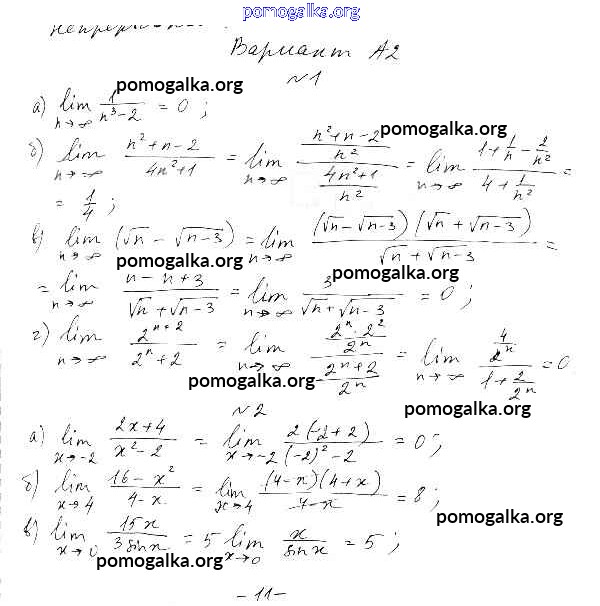 pomogalka.org
Вариант А2
№1
pomogalka.org
а) lim n→∞ 1/(n³-2) = 0 ;
pomogalka.org
б) lim n→∞ (n²+n-2)/(4n²+1) = lim n→∞ ((n²+n-2)/n²)/((4n²+1)/n²) = lim n→∞ (1+1/n-2/n²)/(4+1/n²) =
= 1/4 ;
в) lim n→∞ (√n - √n-3) = lim n→∞ (√n - √n-3)(√n + √n-3)/(√n + √n-3) =
pomogalka.org pomogalka.org
= lim n→∞ (n-n+3)/(√n+√n-3) = lim n→∞ 3/(√n+√n-3) = 0 ;
г) lim n→∞ 2ⁿ⁺²/(2ⁿ+2) = lim n→∞ ((2ⁿ·2²)/2ⁿ)/((2ⁿ+2)/2ⁿ) = lim n→∞ (4/2ⁿ)/(1+2/2ⁿ) = 0
pomogalka.org
№2
pomogalka.org
а) lim x→-2 (2x+4)/(x²-2) = lim x→-2 2(-2+2)/((-2)²-2) = 0 ;
б) lim x→4 (16-x²)/(4-x) = lim x→4 (4-x)(4+x)/(4-x) = 8 ;
pomogalka.org
в) lim x→0 15x/(3 sin x) = 5 lim x→0 x/(sin x) = 5 ;
pomogalka.org
- 11 -